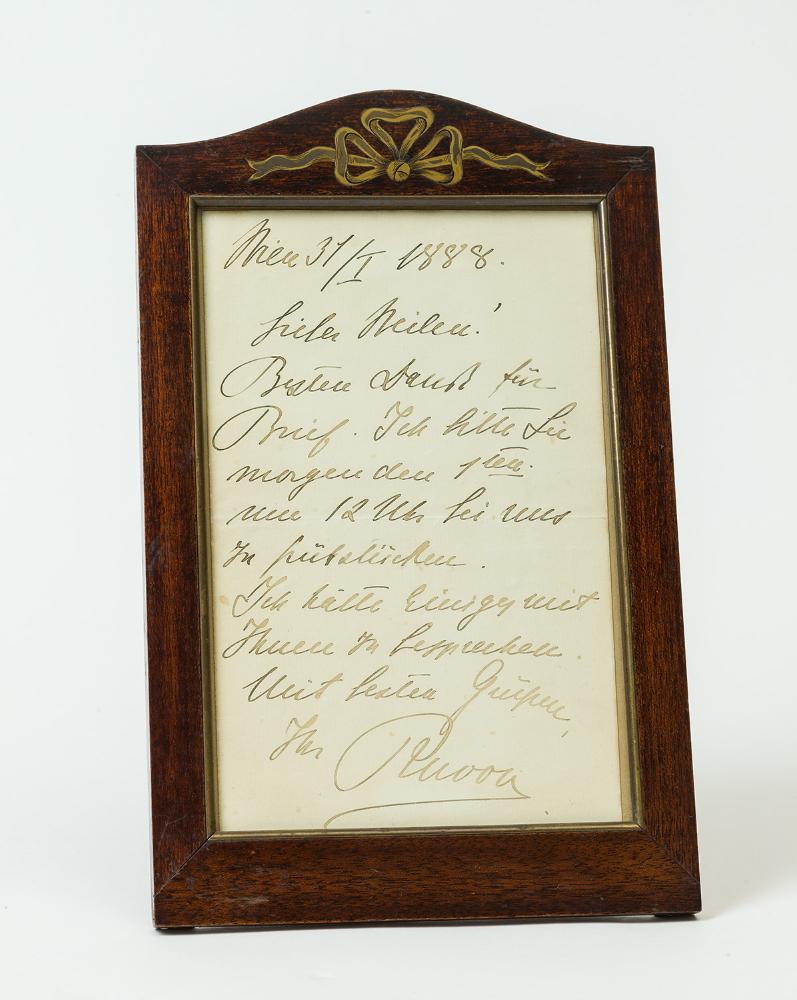 Wien 31/I 1888.
Lieber Weilen!
Besten Dank für
Brief. Ich bitte Sie
morgen den 1ten
um 12 Uhr bei uns
zu frühstücken.
Ich hätte Einiges mit
Ihnen zu besprechen.
Mit besten Grüßen,
Ihr